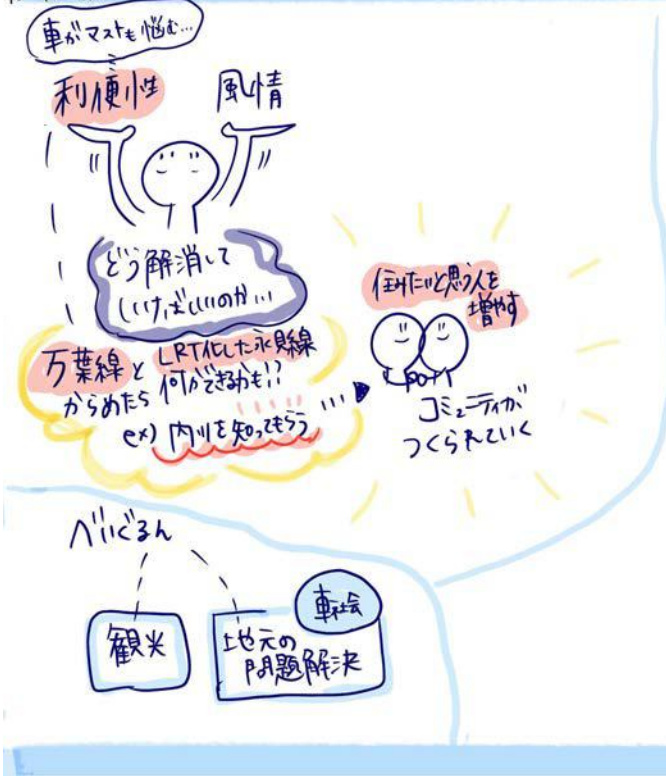 車がマストも悩む…
利便性 風情
どう解消して
いけばいいのか…
万葉線とLRT化した氷見線
からめたら何ができるかも!?
ex) 内川を知ってもらう
住みたいと思う人を
増やす
コミュニティが
つくられていく
べいぐるん
観光
車社会
地元の
問題解決